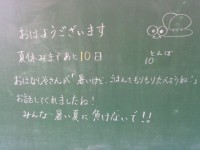 おはようございます
夏休みまであと10日
とんぼ
10
おはなしやさんが「暑いけど、ごはんでもりもりたべようね」
お話してくれましたね!
みんな暑い夏に負けないで!!